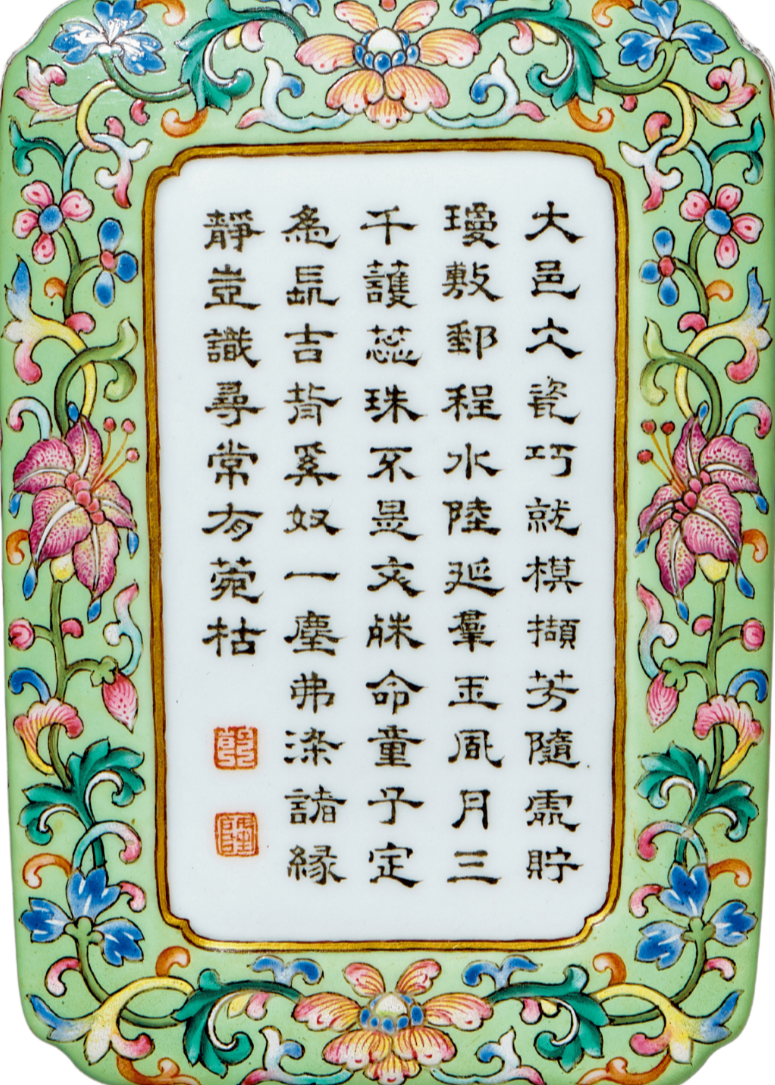 大邑瓷巧就模擷芳隨處貯
瓊敷郵程水陸延羣玉風月三
千護蕊珠不是文殊命童子定
為長吉背奚奴一塵弗染諸緣
靜豈識尋常有菀枯
乾
隆